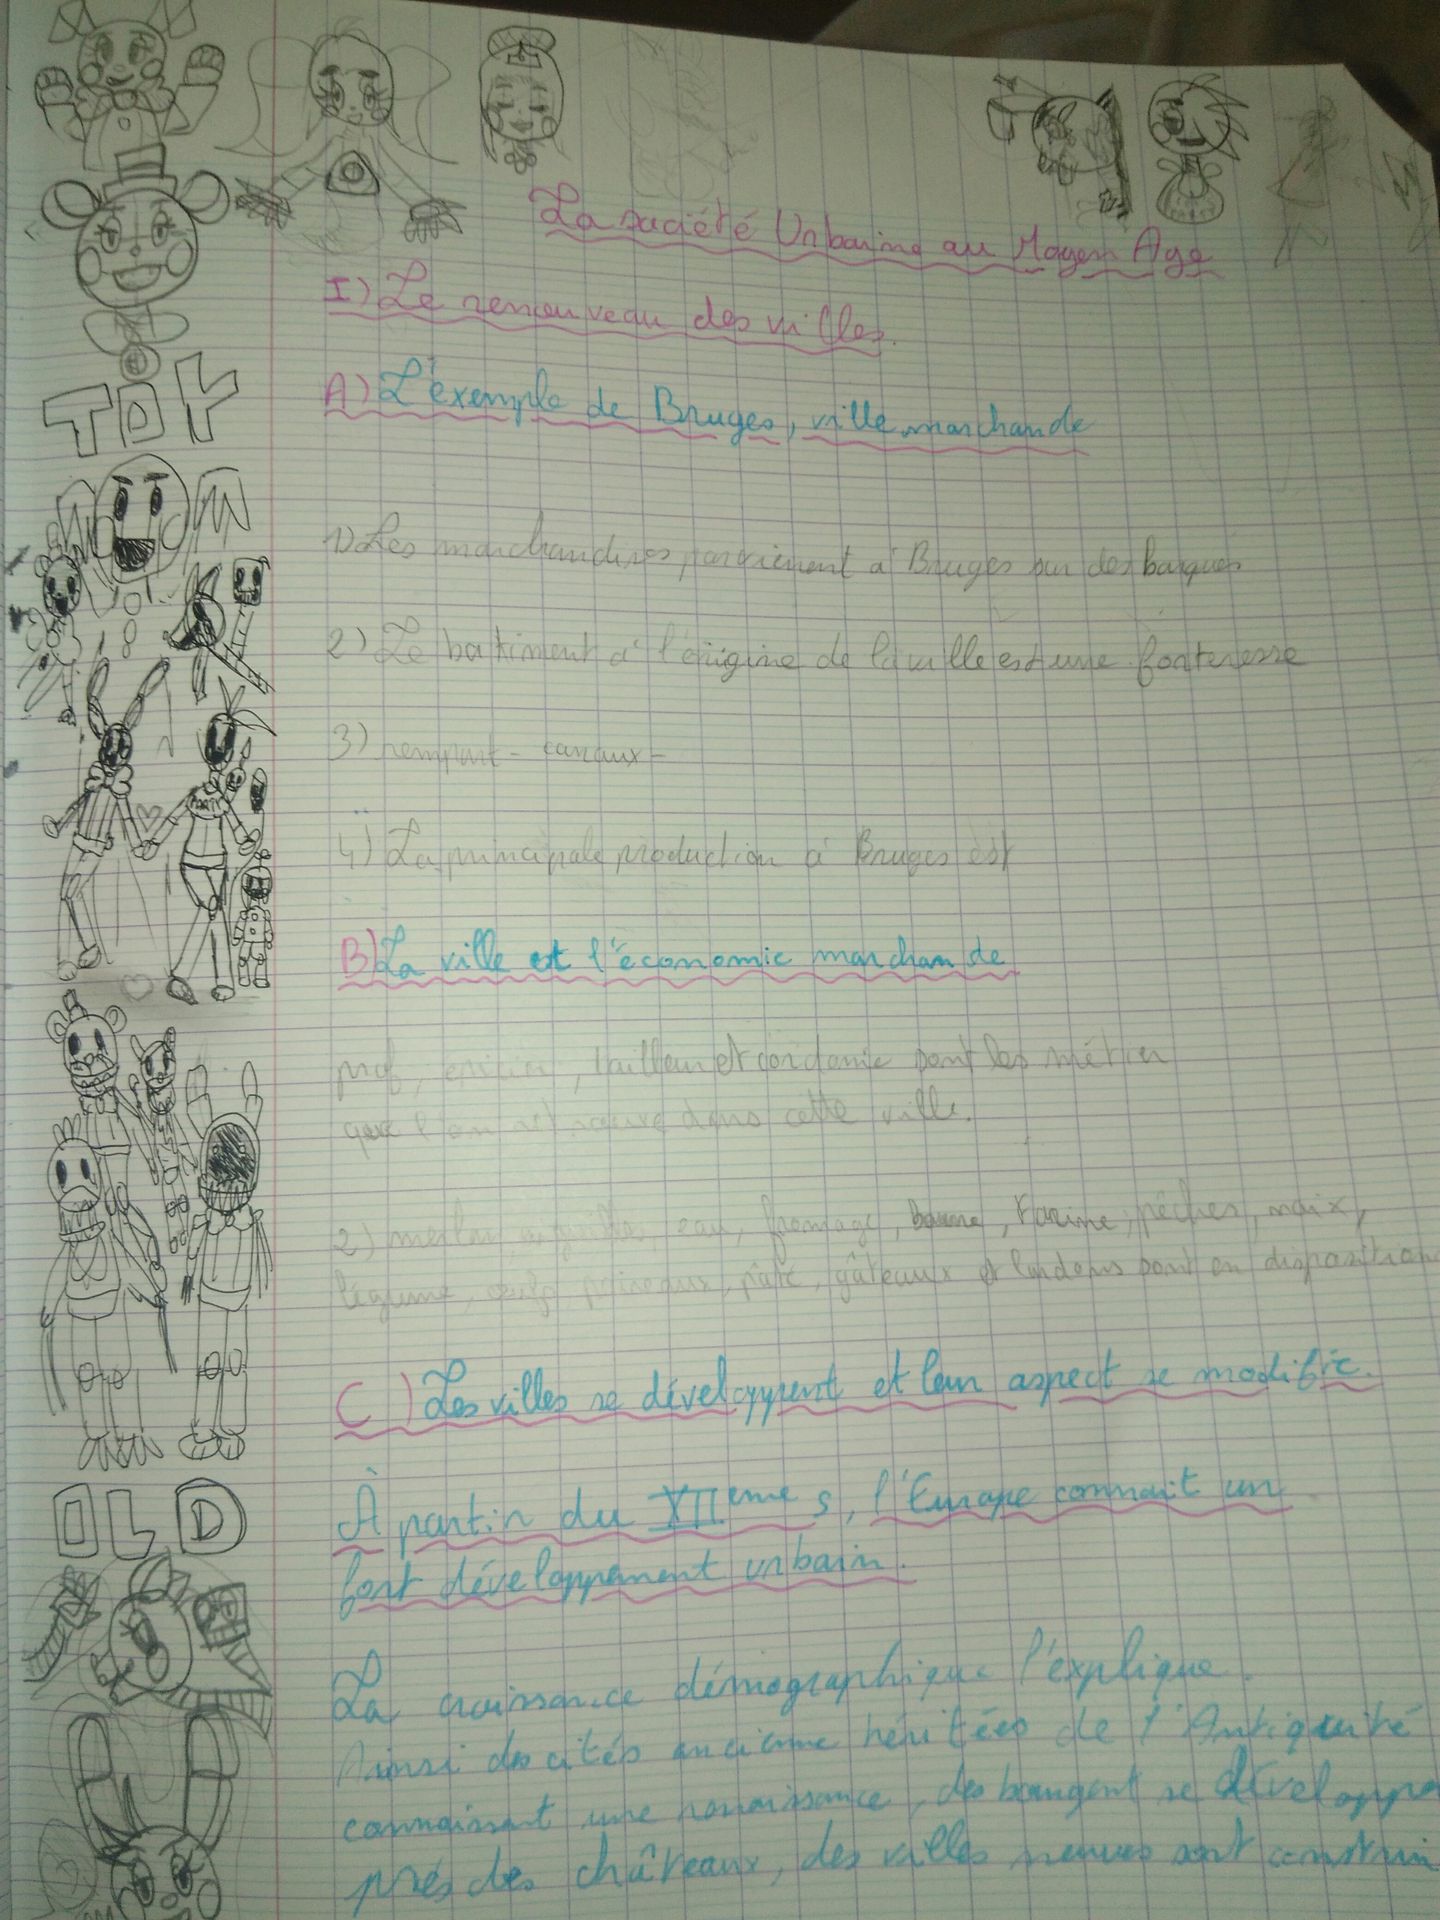 La société Urbaine au Moyen Age
I) Le renouveau des villes.
TOY
A) L'exemple de Bruges, ville marchande
1) Les marchandises parvienent à Bruges sur des barques
2) Le batiment à l'origine de la ville est une forteresse
3) rempart - canaux -
4) La principale production à Bruges est
B) La ville et l'économie marchande
prof, épicier, tailleur et cordonie sont les métier
que l'on retrouve dans cette ville.
2) merlan eau, fromage, beurre, farine, pêches, noix,
légume, poireaux, pâté, gâteaux et lardons sont en disposition
C) Les villes se développent et leur aspect se modifie.
À partir du XIIeme s, l'Europe connait un
fort développement urbain.
OLD
La croissance démographique l'explique.
Ainsi des cités ancienne héritées de l'Antiquité
connaissent une renaissance, des bourgent se développe
près des châteaux, des villes neuves sont construi